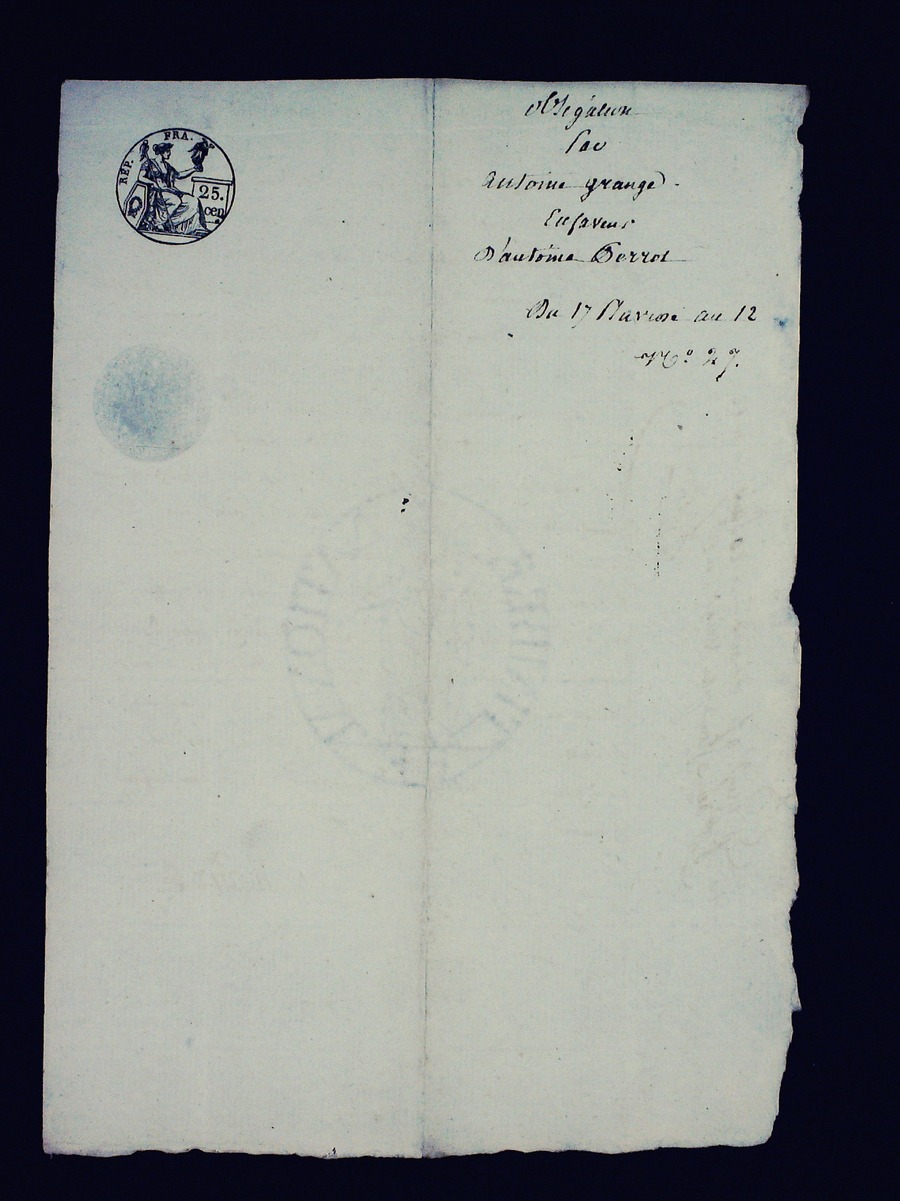 RÉP. FRA.
25.
cen.
Obligation
Par
Antoine grange
En faveur
D'antoine Perrot
Du 17 Pluviose an 12
N.º 27.